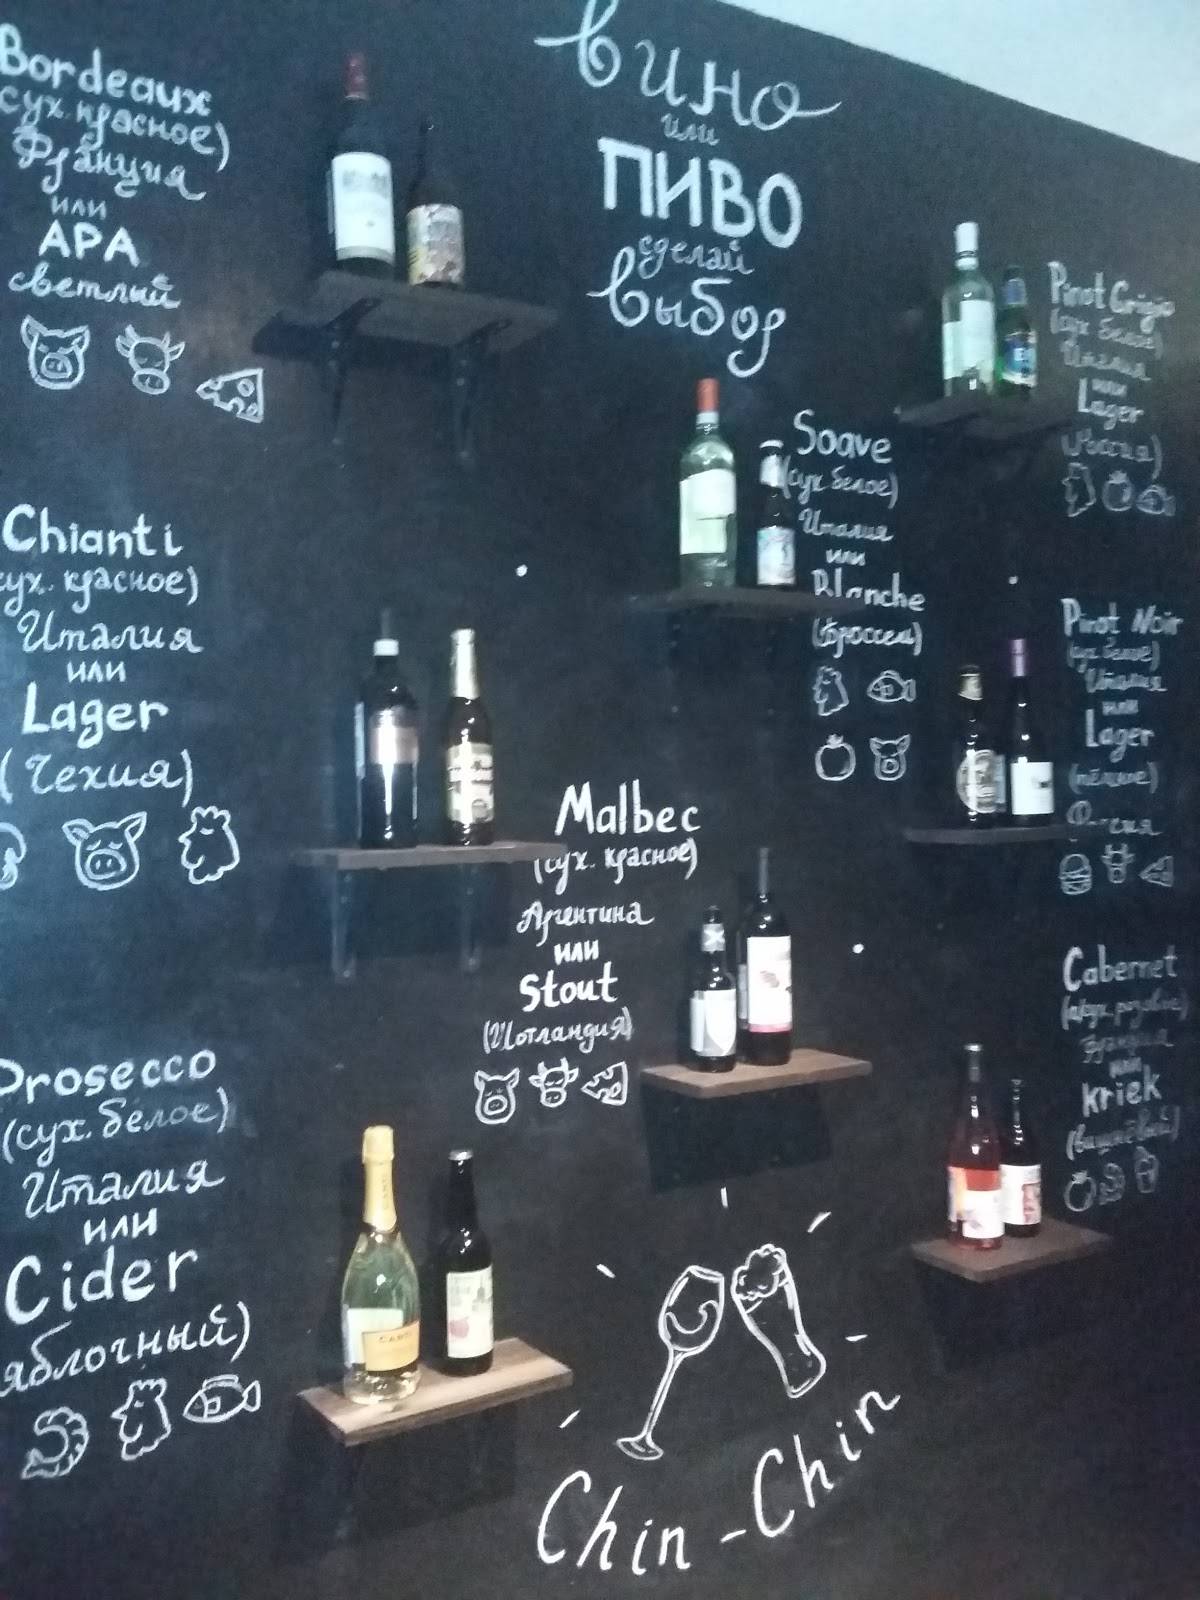 Вино
или
ПИВО
сделай
выбор
Bordeaux
(сух. красное)
Франция
или
APA
светлый
Chianti
(сух. красное)
Италия
или
Lager
(Чехия)
Prosecco
(сух. белое)
Италия
или
Cider
яблочный)
Soave
(сух. белое)
Италия
или
Blanche
(Брюссель)
Malbec
(сух. красное)
Аргентина
или
Stout
(Шотландия)
Pinot Grigio
(сух. белое)
Италия
или
Lager
(Россия)
Pinot Noir
(сух. белое)
Италия
или
Lager
(тёмное)
Cabernet
Франция
или
Kriek
(вишнёвый)
Chin-Chin